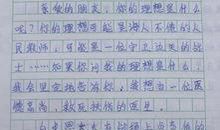 亲爱的朋友，你的理想是什么
呢？你的理想可能是诲人不倦的人
民教师，可能是一位守卫边关的战
士……如果你问我的理想是什么，
我会坚定地告诉你，我想当一位医
德高尚，救死扶伤的医生。